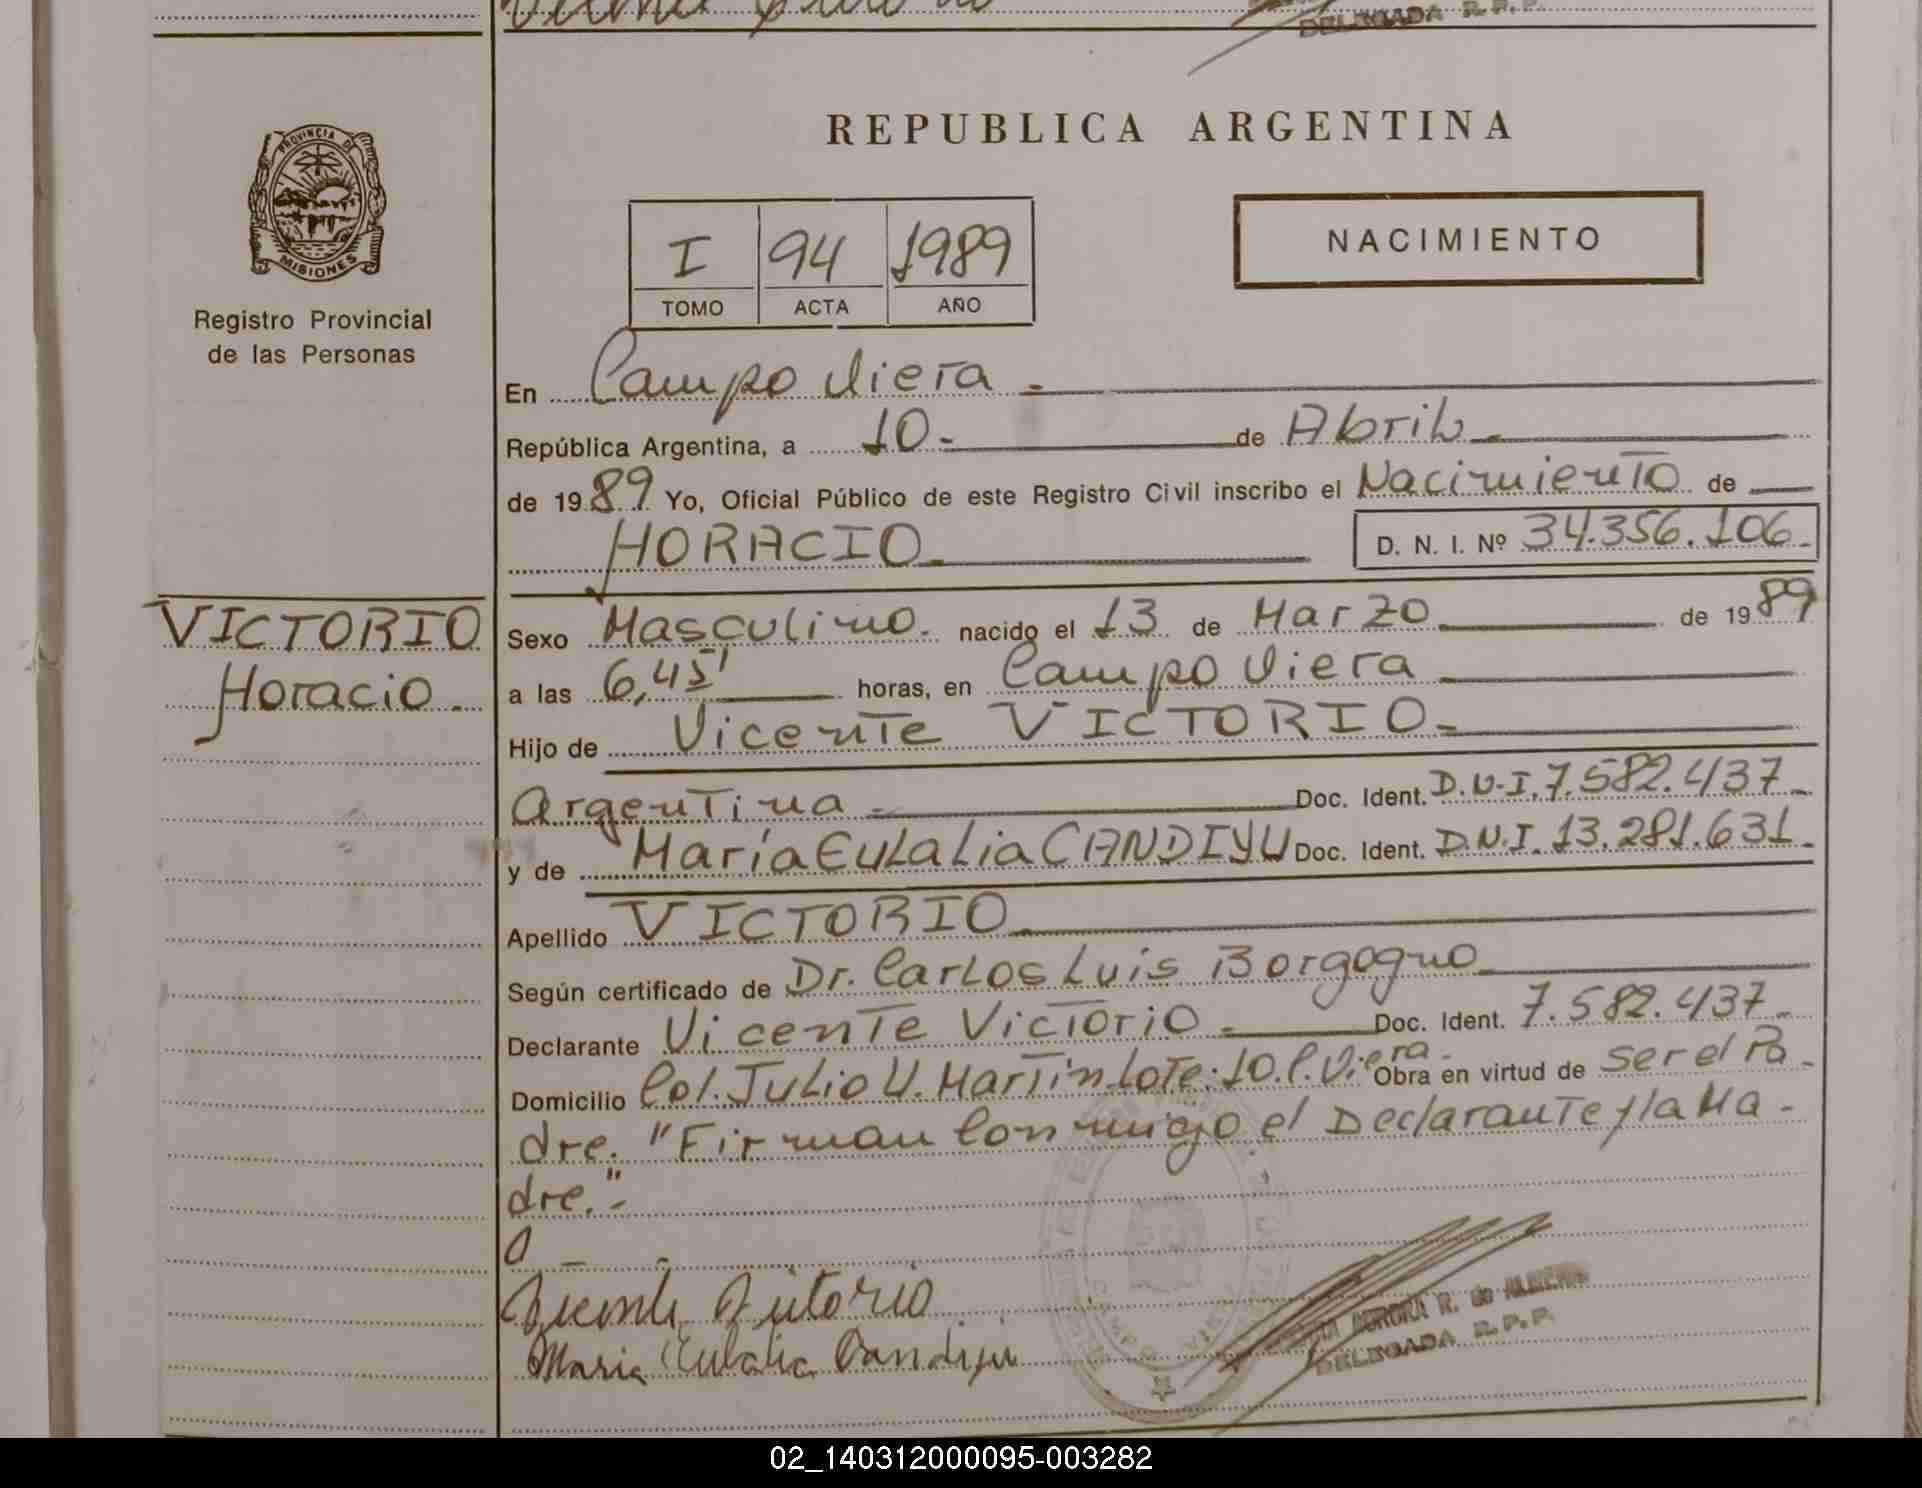 DELEGADA R.P.P.
PROVINCIA DE
MISIONES
Registro Provincial
de las Personas
REPUBLICA ARGENTINA
I 94 1989
TOMO ACTA AÑO
NACIMIENTO
En Campo Viera -
República Argentina, a 10 - de Abril -
de 1989 Yo, Oficial Público de este Registro Civil inscribo el Nacimiento de
HORACIO D. N. I. Nº 34.356.106.-
VICTORIO
Horacio.
Sexo Masculino. nacido el 13 de Marzo de 1989
a las 6,45' horas, en Campo Viera
Hijo de Vicente VICTORIO -
Argentina - Doc. Ident. D.N.I. 7.582.437 -
y de María Eulalia CANDIYU Doc. Ident. D.N.I. 13.281.631 -
Apellido VICTORIO
Según certificado de Dr. Carlos Luis Borgogno
Declarante Vicente Victorio - Doc. Ident. 7.582.437 -
Domicilio Col. Julio U. Martin Lote: 10. C. Viera - Obra en virtud de ser el Pa -
dre. "Firman Conmigo el Declarante y la Ma -
dre." -
Vicente Victorio
Maria Eulalia Candiyu
AURORA R. de
DELEGADA R.P.P.
02_140312000095-003282